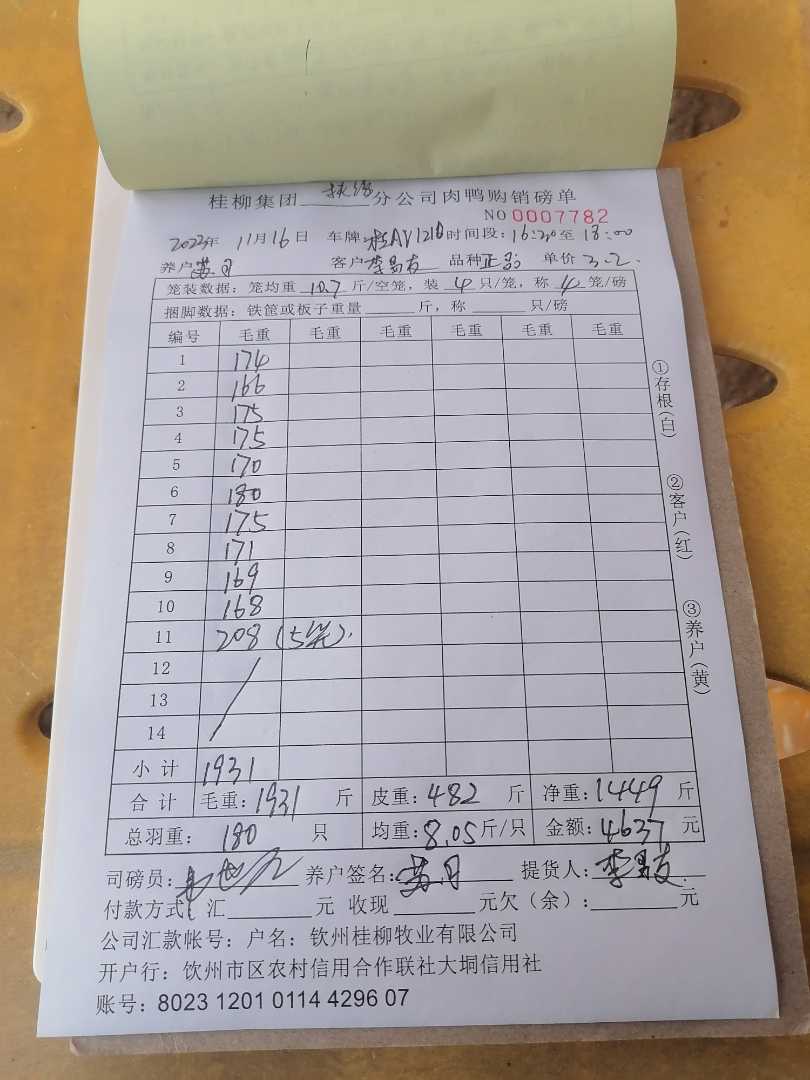 桂柳集团 分公司肉鸭购销磅单
NO 0007782
2022年 11月16日 车牌 桂AY1210 时间段:16:20至 18:00
养户 苏月 客户 李易友 品种 正品 单价 3.2
笼装数据:笼均重 10.7 斤/空笼,装 4 只/笼,称 4 笼/磅
捆脚数据:铁筐或板子重量 斤,称 只/磅
编号 毛重 毛重 毛重 毛重 毛重 毛重
1 174
2 166
3 175
4 175
5 170
6 180
7 175
8 171
9 169
10 168
11 208 (5笼)
12
13
14
小计 1931
合计 毛重:1931 斤 皮重:482 斤 净重:1449 斤
总羽重: 180 只 均重:8.05斤/只 金额:4637 元
司磅员: 养户签名:苏月 提货人:李易友
付款方式:汇 元 收现 元欠(余): 元
公司汇款帐号:户名:钦州桂柳牧业有限公司
开户行:饮州市区农村信用合作联社大垌信用社
账号:8023 1201 0114 4296 07
①存根(白)
②客户(红)
③养户(黄)